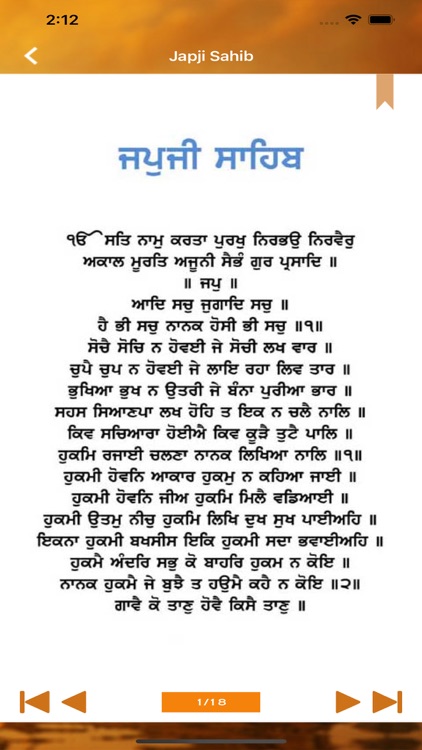 2:12
Japji Sahib
ਜਪੁਜੀ ਸਾਹਿਬ
ੴ ਸਤਿ ਨਾਮੁ ਕਰਤਾ ਪੁਰਖੁ ਨਿਰਭਉ ਨਿਰਵੈਰੁ
ਅਕਾਲ ਮੂਰਤਿ ਅਜੂਨੀ ਸੈਭੰ ਗੁਰ ਪ੍ਰਸਾਦਿ ॥
॥ ਜਪੁ ॥
ਆਦਿ ਸਚੁ ਜੁਗਾਦਿ ਸਚੁ ॥
ਹੈ ਭੀ ਸਚੁ ਨਾਨਕ ਹੋਸੀ ਭੀ ਸਚੁ ॥੧॥
ਸੋਚੈ ਸੋਚਿ ਨ ਹੋਵਈ ਜੇ ਸੋਚੀ ਲਖ ਵਾਰ ॥
ਚੁਪੈ ਚੁਪ ਨ ਹੋਵਈ ਜੇ ਲਾਇ ਰਹਾ ਲਿਵ ਤਾਰ ॥
ਭੁਖਿਆ ਭੁਖ ਨ ਉਤਰੀ ਜੇ ਬੰਨਾ ਪੁਰੀਆ ਭਾਰ ॥
ਸਹਸ ਸਿਆਣਪਾ ਲਖ ਹੋਹਿ ਤ ਇਕ ਨ ਚਲੈ ਨਾਲਿ ॥
ਕਿਵ ਸਚਿਆਰਾ ਹੋਈਐ ਕਿਵ ਕੂੜੈ ਤੁਟੈ ਪਾਲਿ ॥
ਹੁਕਮਿ ਰਜਾਈ ਚਲਣਾ ਨਾਨਕ ਲਿਖਿਆ ਨਾਲਿ ॥੧॥
ਹੁਕਮੀ ਹੋਵਨਿ ਆਕਾਰ ਹੁਕਮੁ ਨ ਕਹਿਆ ਜਾਈ ॥
ਹੁਕਮੀ ਹੋਵਨਿ ਜੀਅ ਹੁਕਮਿ ਮਿਲੈ ਵਡਿਆਈ ॥
ਹੁਕਮੀ ਉਤਮੁ ਨੀਚੁ ਹੁਕਮਿ ਲਿਖਿ ਦੁਖ ਸੁਖ ਪਾਈਅਹਿ ॥
ਇਕਨਾ ਹੁਕਮੀ ਬਖਸੀਸ ਇਕਿ ਹੁਕਮੀ ਸਦਾ ਭਵਾਈਅਹਿ ॥
ਹੁਕਮੈ ਅੰਦਰਿ ਸਭੁ ਕੋ ਬਾਹਰਿ ਹੁਕਮ ਨ ਕੋਇ ॥
ਨਾਨਕ ਹੁਕਮੈ ਜੇ ਬੁਝੈ ਤ ਹਉਮੈ ਕਹੈ ਨ ਕੋਇ ॥੨॥
ਗਾਵੈ ਕੋ ਤਾਣੁ ਹੋਵੈ ਕਿਸੈ ਤਾਣੁ ॥
1/18